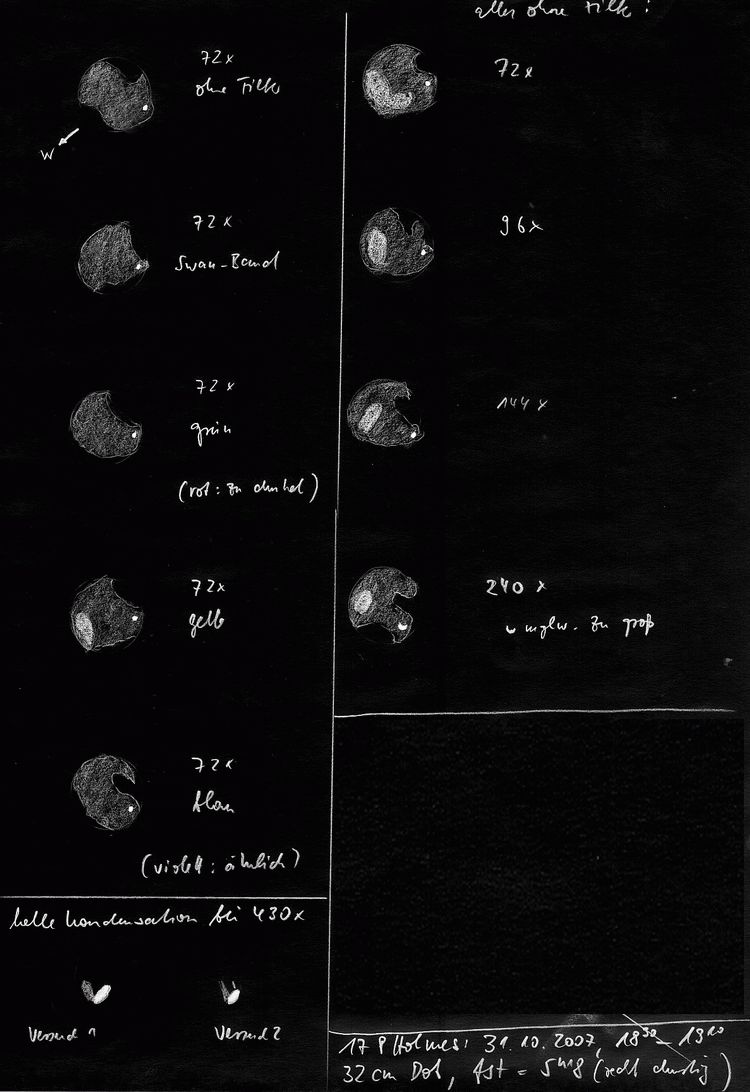 72x
ohne Filter
W
72x
Swan-Band
72x
grün
(rot: zu dunkel)
72x
gelb
72x
blau
(violett: ähnlich)
helle Kondensation bei 430x
Versuch 1
Versuch 2
alles ohne Filter:
72x
96x
144x
240x
zu groß
17P Holmes: 31.10.2007, 18³⁰ – 19¹⁰
32 cm Dob, fst = 5ᵐ8 (recht dunstig)